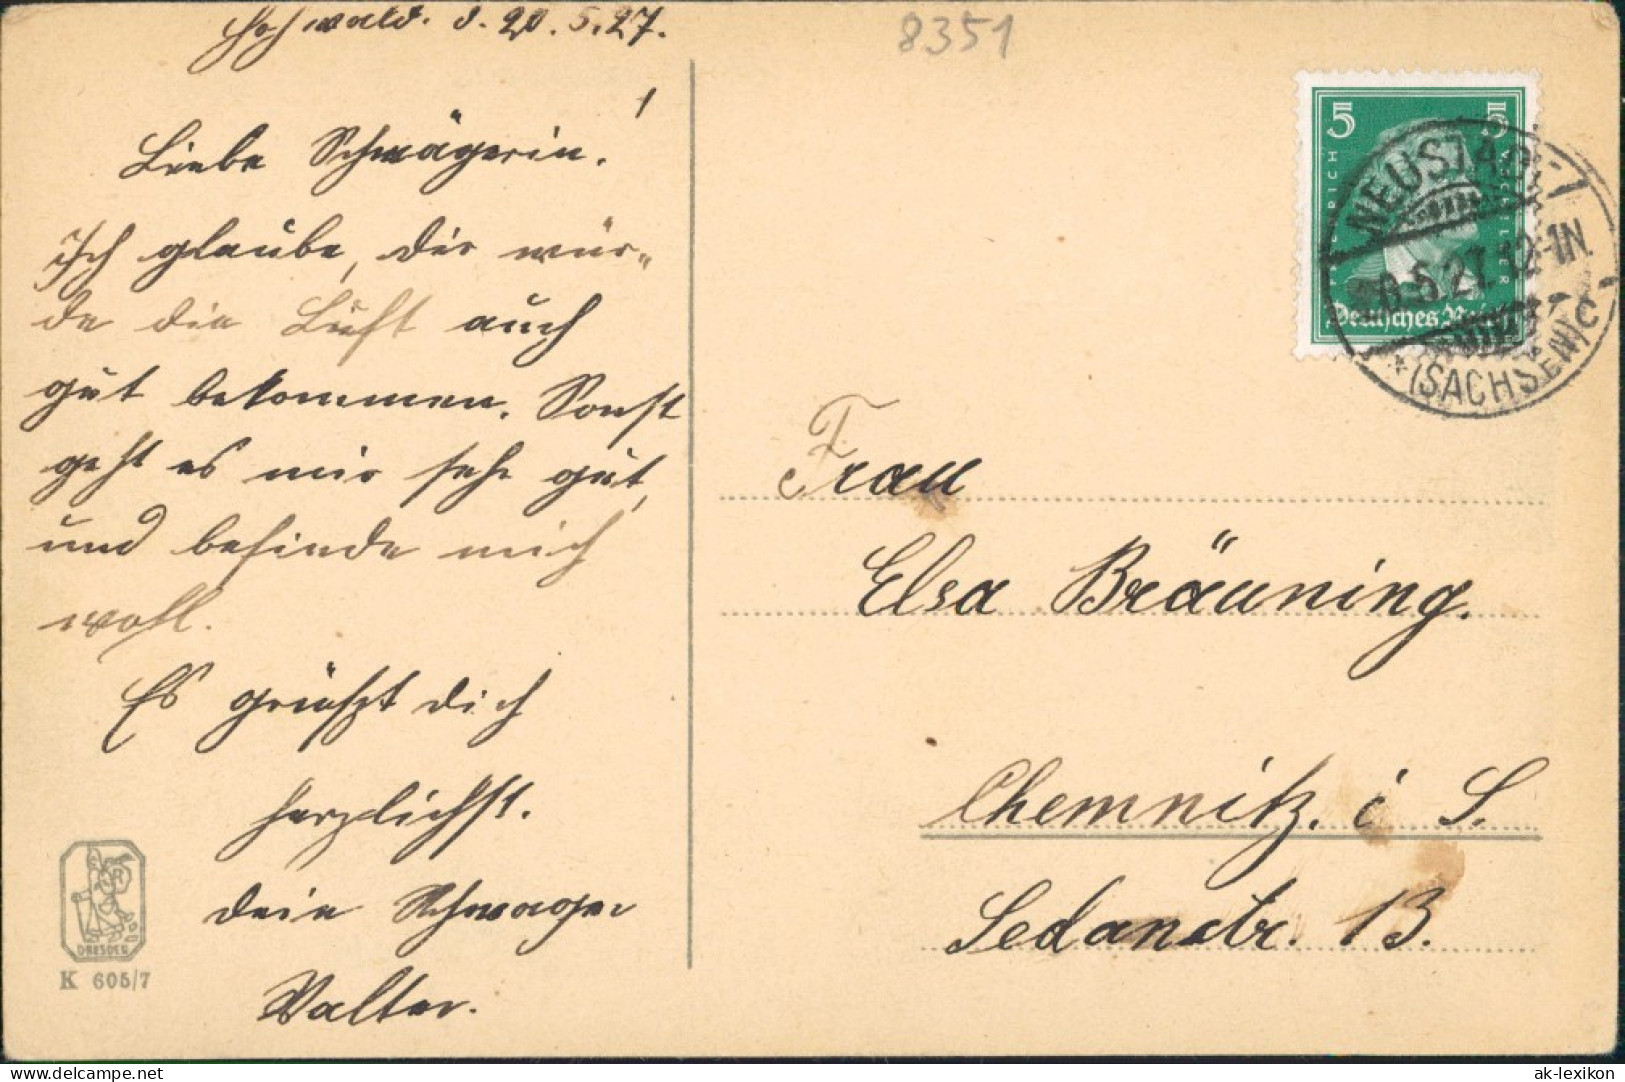 Hohwald. d. 20.5.27.
8351
Liebe Schwägerin!
Ich glaube, dir wür-
de die Luft auch
gut bekommen. Sonst
geht es mir sehr gut,
und befinde mich
wohl.
Es grüßt dich
herzlichst.
dein Schwager
Walter.
DRESDEN
K 605/7
5 5
FRIEDRICH VON SCHILLER
Deutsches Reich
NEUSTADT
5.27.12-1N
* (SACHSEN) C
Frau
Elsa Bräuning.
Chemnitz. i S.
Sedanstr. 13.
www.delcampe.net
ak-lexikon